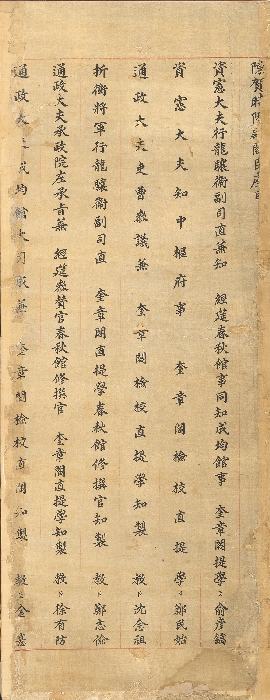 資憲大夫行龍驤衛副司直兼知 經筵春秋館事同知成均館事 奎章閣提學臣俞彦鎬
資憲大夫知中樞府事 奎章閣檢校直提學臣鄭民始
通政大夫吏曹叅議兼 奎章閣檢校直提學知製 敎臣沈念祖
折衝將軍行龍驤衛副司直 奎章閣直提學春秋館修撰官知製 敎臣鄭志儉
通政大夫承政院左承旨兼 經筵叅贊官春秋館修撰官 奎章閣直提學知製 敎臣徐有防
通政大夫成均館大司成兼 奎章閣檢校直閣知製 敎臣金憙